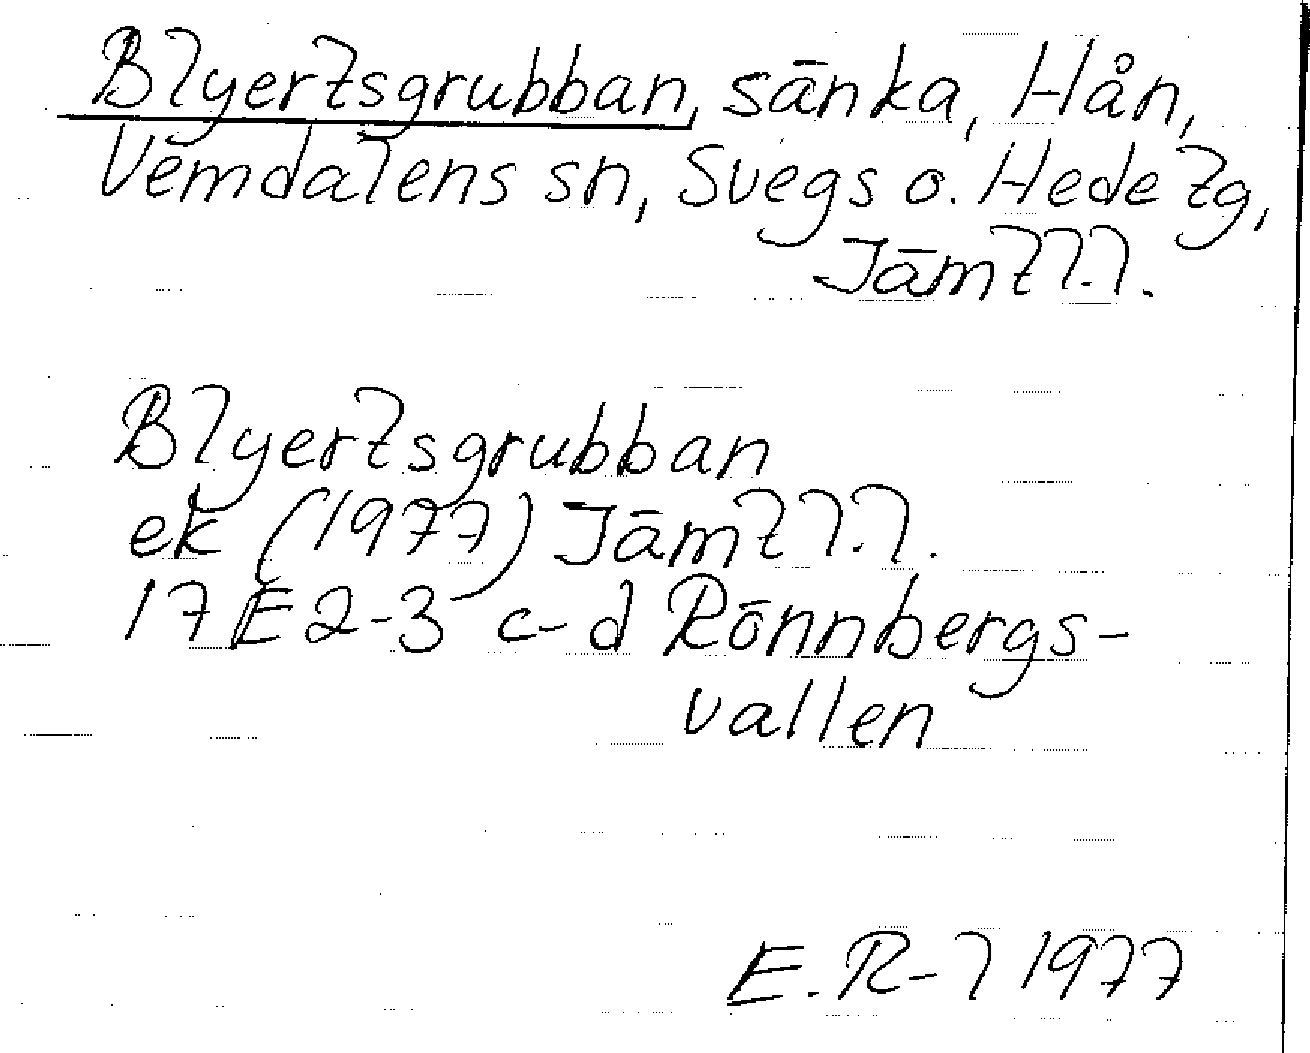 Blyertsgrubban, sänka, Hån,
Vemdalens sn, Svegs o. Hede tg,
Jämtl.l.
Blyertsgrubban
ek (1977) Jämtl.l.
17E2-3 c-d Rönnbergs-
vallen
E. R-l 1977